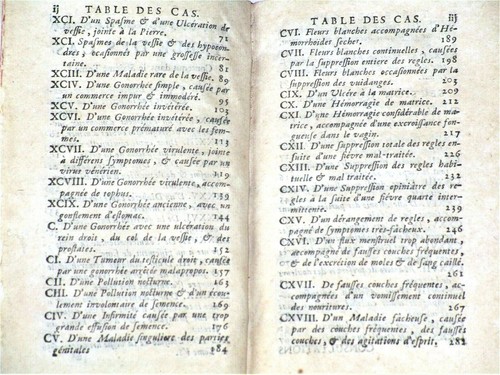 ij TABLE DES CAS.
XCI. D'un Spasme & d'une Ulcération de
vessie, jointe à la Pierre. 71
XCI. Spasmes de la vessie & des hypocon-
dres, ocasionnés par une grossesse incer-
taine. 82
XCIII. D'une Maladie rare de la vessie. 89
XCIV. D'une Gonorrhée simple, causée par
un commerce impur & immodéré. 95
XCV. D'une Gonorrhée invétérée. 103
XCVI. D'une Gonorrhée invétérée, causée
par un commerce prématuré avec les fem-
mes. 113
XCVII. D'une Gonorrhée virulente, jointe
à différens symptomes, & causée par un
virus vénérien. 119
XCVIII. D'une Gonorrhée virulente, accom-
pagnée de tophus. 139
XCIX. D'une Gonorrhée ancienne, avec un
gonflement d'estomac. 144
C. D'une Gonorrhée avec une ulcération du
rein droit, du col de la vessie, & des
prostates. 152
CI. D'une Tumeur du testicule droit, causée
par une gonorrhée arrêtée malapropos. 157
CII. D'une Pollution nocturne. 163
CIII. D'une Pollution nocturne & d'un écou-
lement involontaire de semence. 169
CIV. D'une Infirmité causée par une trop
grande effusion de semence. 176
CV. D'une Maladie singuliere des parties
génitales 184
TABLE DES CAS. iij
CVI. Fleurs blanches accompagnées d'Hé-
morrhoïdes seches. 189
CVII. Fleurs blanches continuelles, causées
par la suppression entiere des regles. 198
CVIII. Fleurs blanches occasionnées par la
suppression des vuidanges. 203
CIX. D'un Ulcère à la matrice. 208
CX. D'une Hémorragie de matrice. 212
CXI. D'une Hémorragie considérable de ma-
trice, accompagnée d'une excroissance fon-
gueuse dans le vagin. 217
CXII. D'une suppression totale des regles en-
suite d'une fièvre mal-traitée. 226
CXIII. D'une Suppression de regles habi-
tuelle & mal traitée. 232
CXIV. D'une Suppression opiniâtre des re-
gles à la suite d'une fiévre quarte inter-
mittente. 239
CXV. D'un dérangement de regles, accom-
pagné de symptomes très-fâcheux. 246
CXVI. D'un flux menstruel trop abondant,
accompagné de fausses couches fréquentes,
& de l'excretion de moles & de sang caillé.
261
CXVII. De fausses couches fréquentes, ac-
compagnées d'un vomissement continuel
des nouritures. 267
CXVIII. D'un Maladie fâcheuse, causée
par des couches fréquentes, des fausses
couches, & des agitations d'esprit, 282